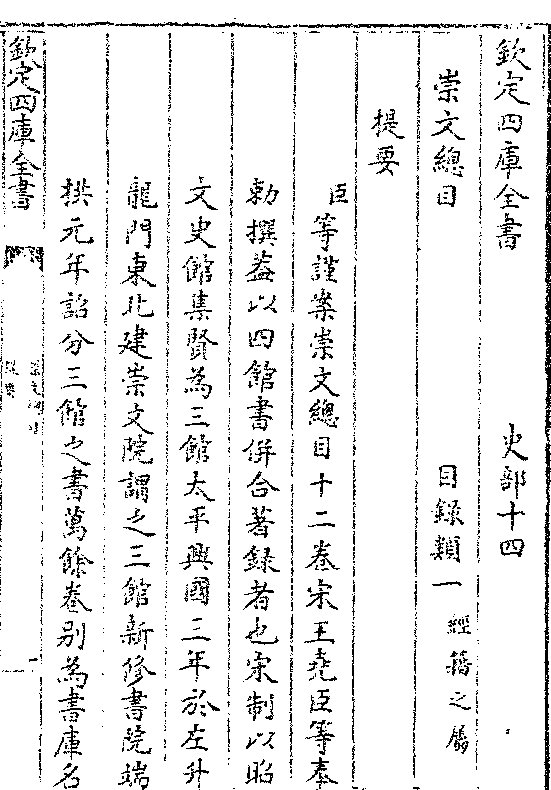 欽定四庫全書 史部十四
崇文總目 目録類一 經籍之屬
提要
臣等謹案崇文總目十二卷宋王堯臣等奉
勅撰葢以四館書併合著録者也宋制以昭
文史館集賢為三館太平興國三年於左升
龍門東北建崇文院謂之三館新修書院端
拱元年詔分三館之書萬餘卷别為書庫名
欽定四庫全書